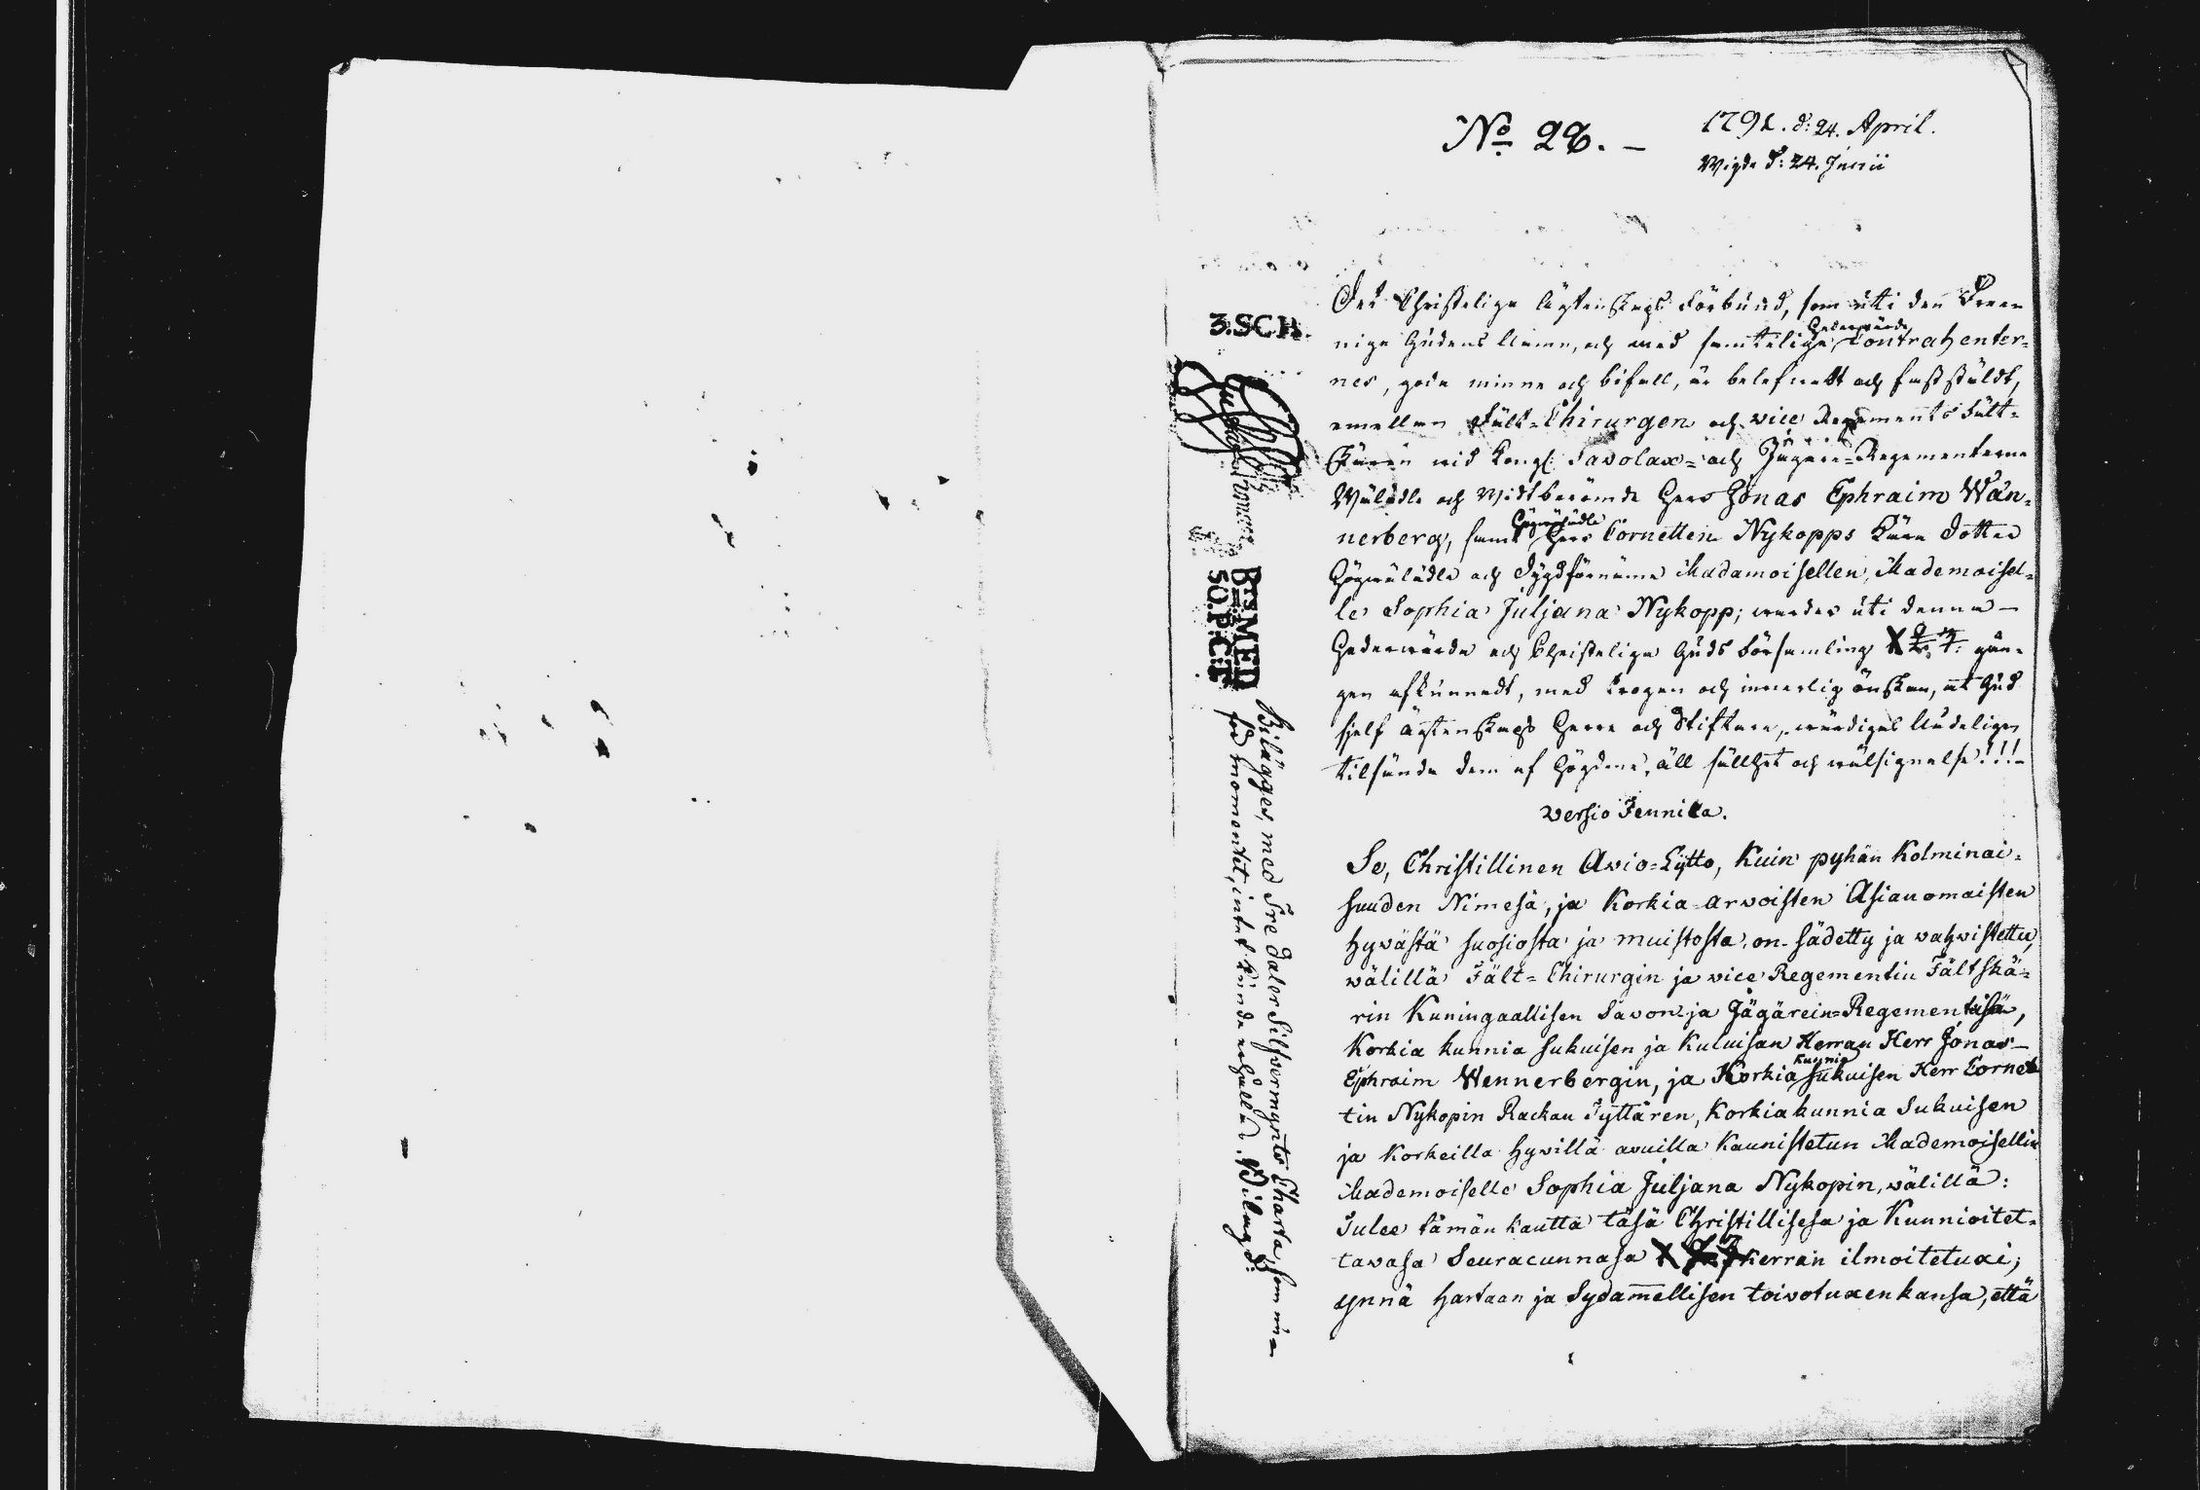 No 28. –
1791. d: 24. April.
Wigde d: 24. Junii
3.SCH.
Det Christeliga Ägtenskaps Förbund, som uti den Treen
niga Gudens Namn, och med samtelige Hedervärde Contrahenter=
nes, goda minne och bifall, är belefwadt och fastställdt,
emellan Fält=Chirurgen och vice Regements Fält=
skären wid Kongl. Savolax= och Jägare=Regementerne
Wälädle och Widtberömde Herr Jonas Ephraim Wän=
nerberg, samt Högwälädle Herr Cornetten Nykopps Kära Dotter
Högwälädla och Dygdförnäma Madamoisellen, Mademoisel=
le Sophia Juljana Nykopp; warder uti denna –
Hedervärda och Christeliga Guds Församling X gån=
gen afkunnadt, med trogen och innerlig önskan, att Gud
sjelf Ägtenskaps Herre och Stiftare, wärdigas Nådeligen
tilsända dem af Högdene, all sällhet och wälsignelse!!!–
Versio Fennica.
Se, Christillinen Awio=Lijtto, Kuin pyhän Kolminai=
suuden Nimesä, ja Korkia=arwoisten Asianomaisten
hywästä suosiosta ja muistosta, on sädetty ja wahwistettu,
wälillä Fält=Chirurgin ja vice Regementin Fältskä=
rin Kuningaallisen Savon ja Jägärein=Regementisä,
Korkia kunnia sukuisen ja Kuluisan Herran Herr Jonas –
Ephraim Wennerbergin, ja Korkia kunnia sukuisen Herr Cornet
tin Nykopin Rackan Tyttären, Korkiakunnia Sukuisen
ja Korkeilla hywillä awuilla Kaunistetun Mademoisellin
Mademoiselle Sophia Juljana Nykopin, wälillä:
Tulee tämän kautta täsä Christillisesä ja Kunnioitet=
tawasa Seuracunnasa X kerran ilmoitetuxi;
ynnä hartaan ja Sydamellisen toiwotuxen kansa, että
BtsMED
50.P:CT
Bilägges, med Tre daler Silfvermynts Charta, som nu=
för momentet, intet kunde erhållas.